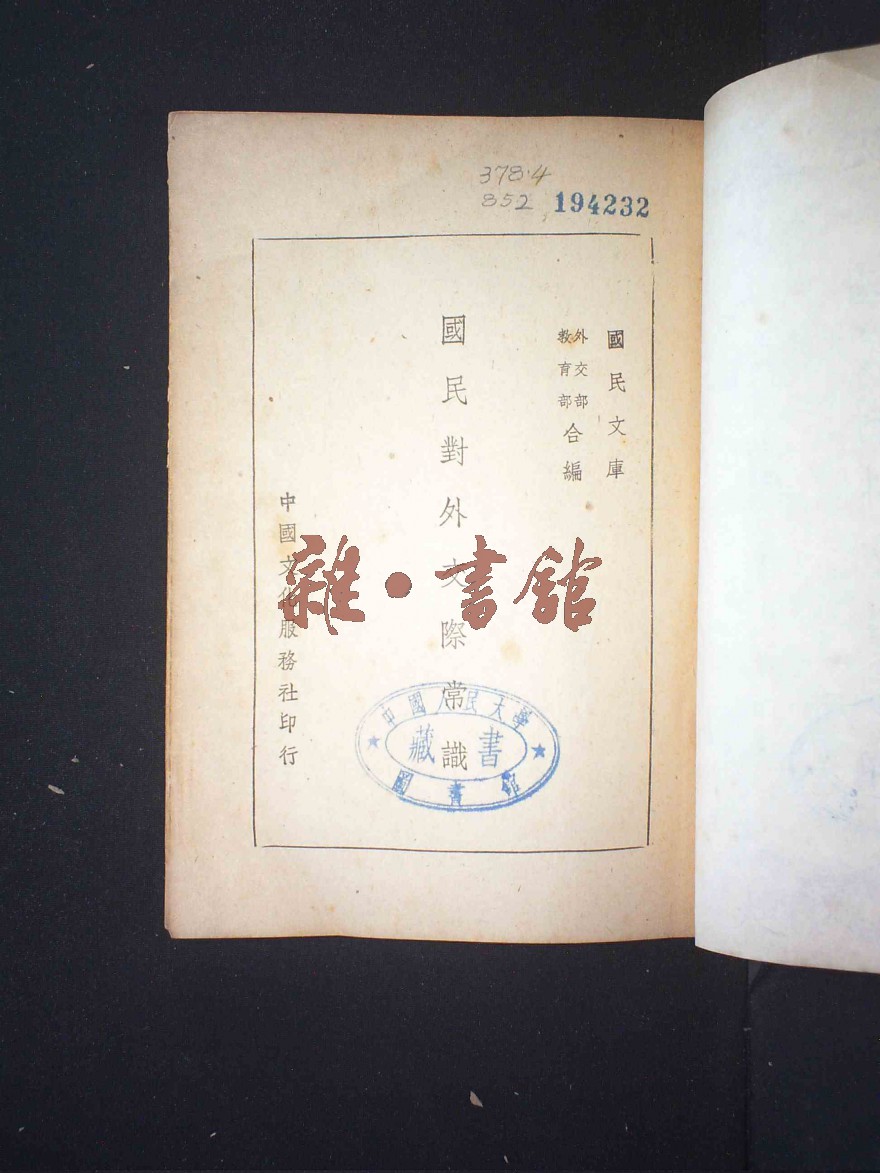 378.4
852 194232
國民文庫
外交部
教育部
合編
國民對外交際常識
中國文化服務社印行
雜·書館
中國人民大學
藏書
圖書館